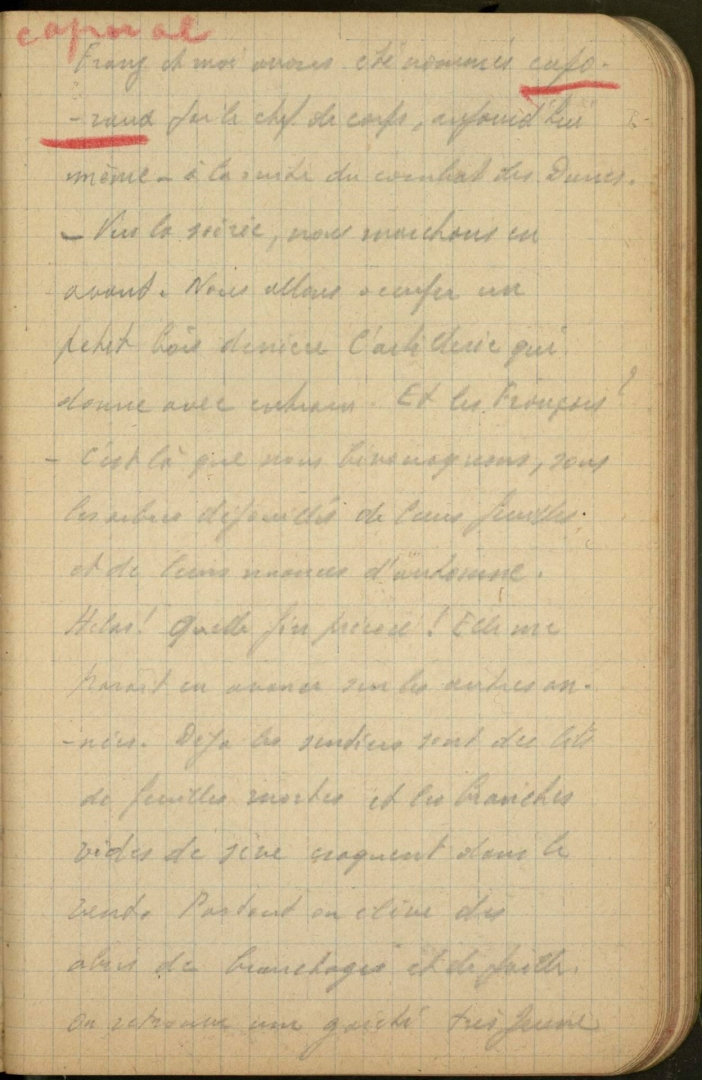 caporal
Franz et moi avons été nommés capo-
-raux par le chef de corps, aujourd'hui
même - à la suite du combat des Dunes.
- Vers la soirée, nous marchons en
avant. Nous allons occuper un
petit bois derrière l'artillerie qui
donne avec entrain. Et les Français?
- C'est là que nous bivouaquons, sous
les arbres dépouillés de leurs feuilles
et de leurs nuances d'automne.
Hélas! Quelle fin précoce! Elle me
paraît en avance sur les autres an-
-nées. Déjà les sentiers sont des lits
de feuilles mortes et les branches
vides de sève craquent dans le
vent. Partout on élève des
abris de branchages et de paille.
On retrouve une gaieté très jeune